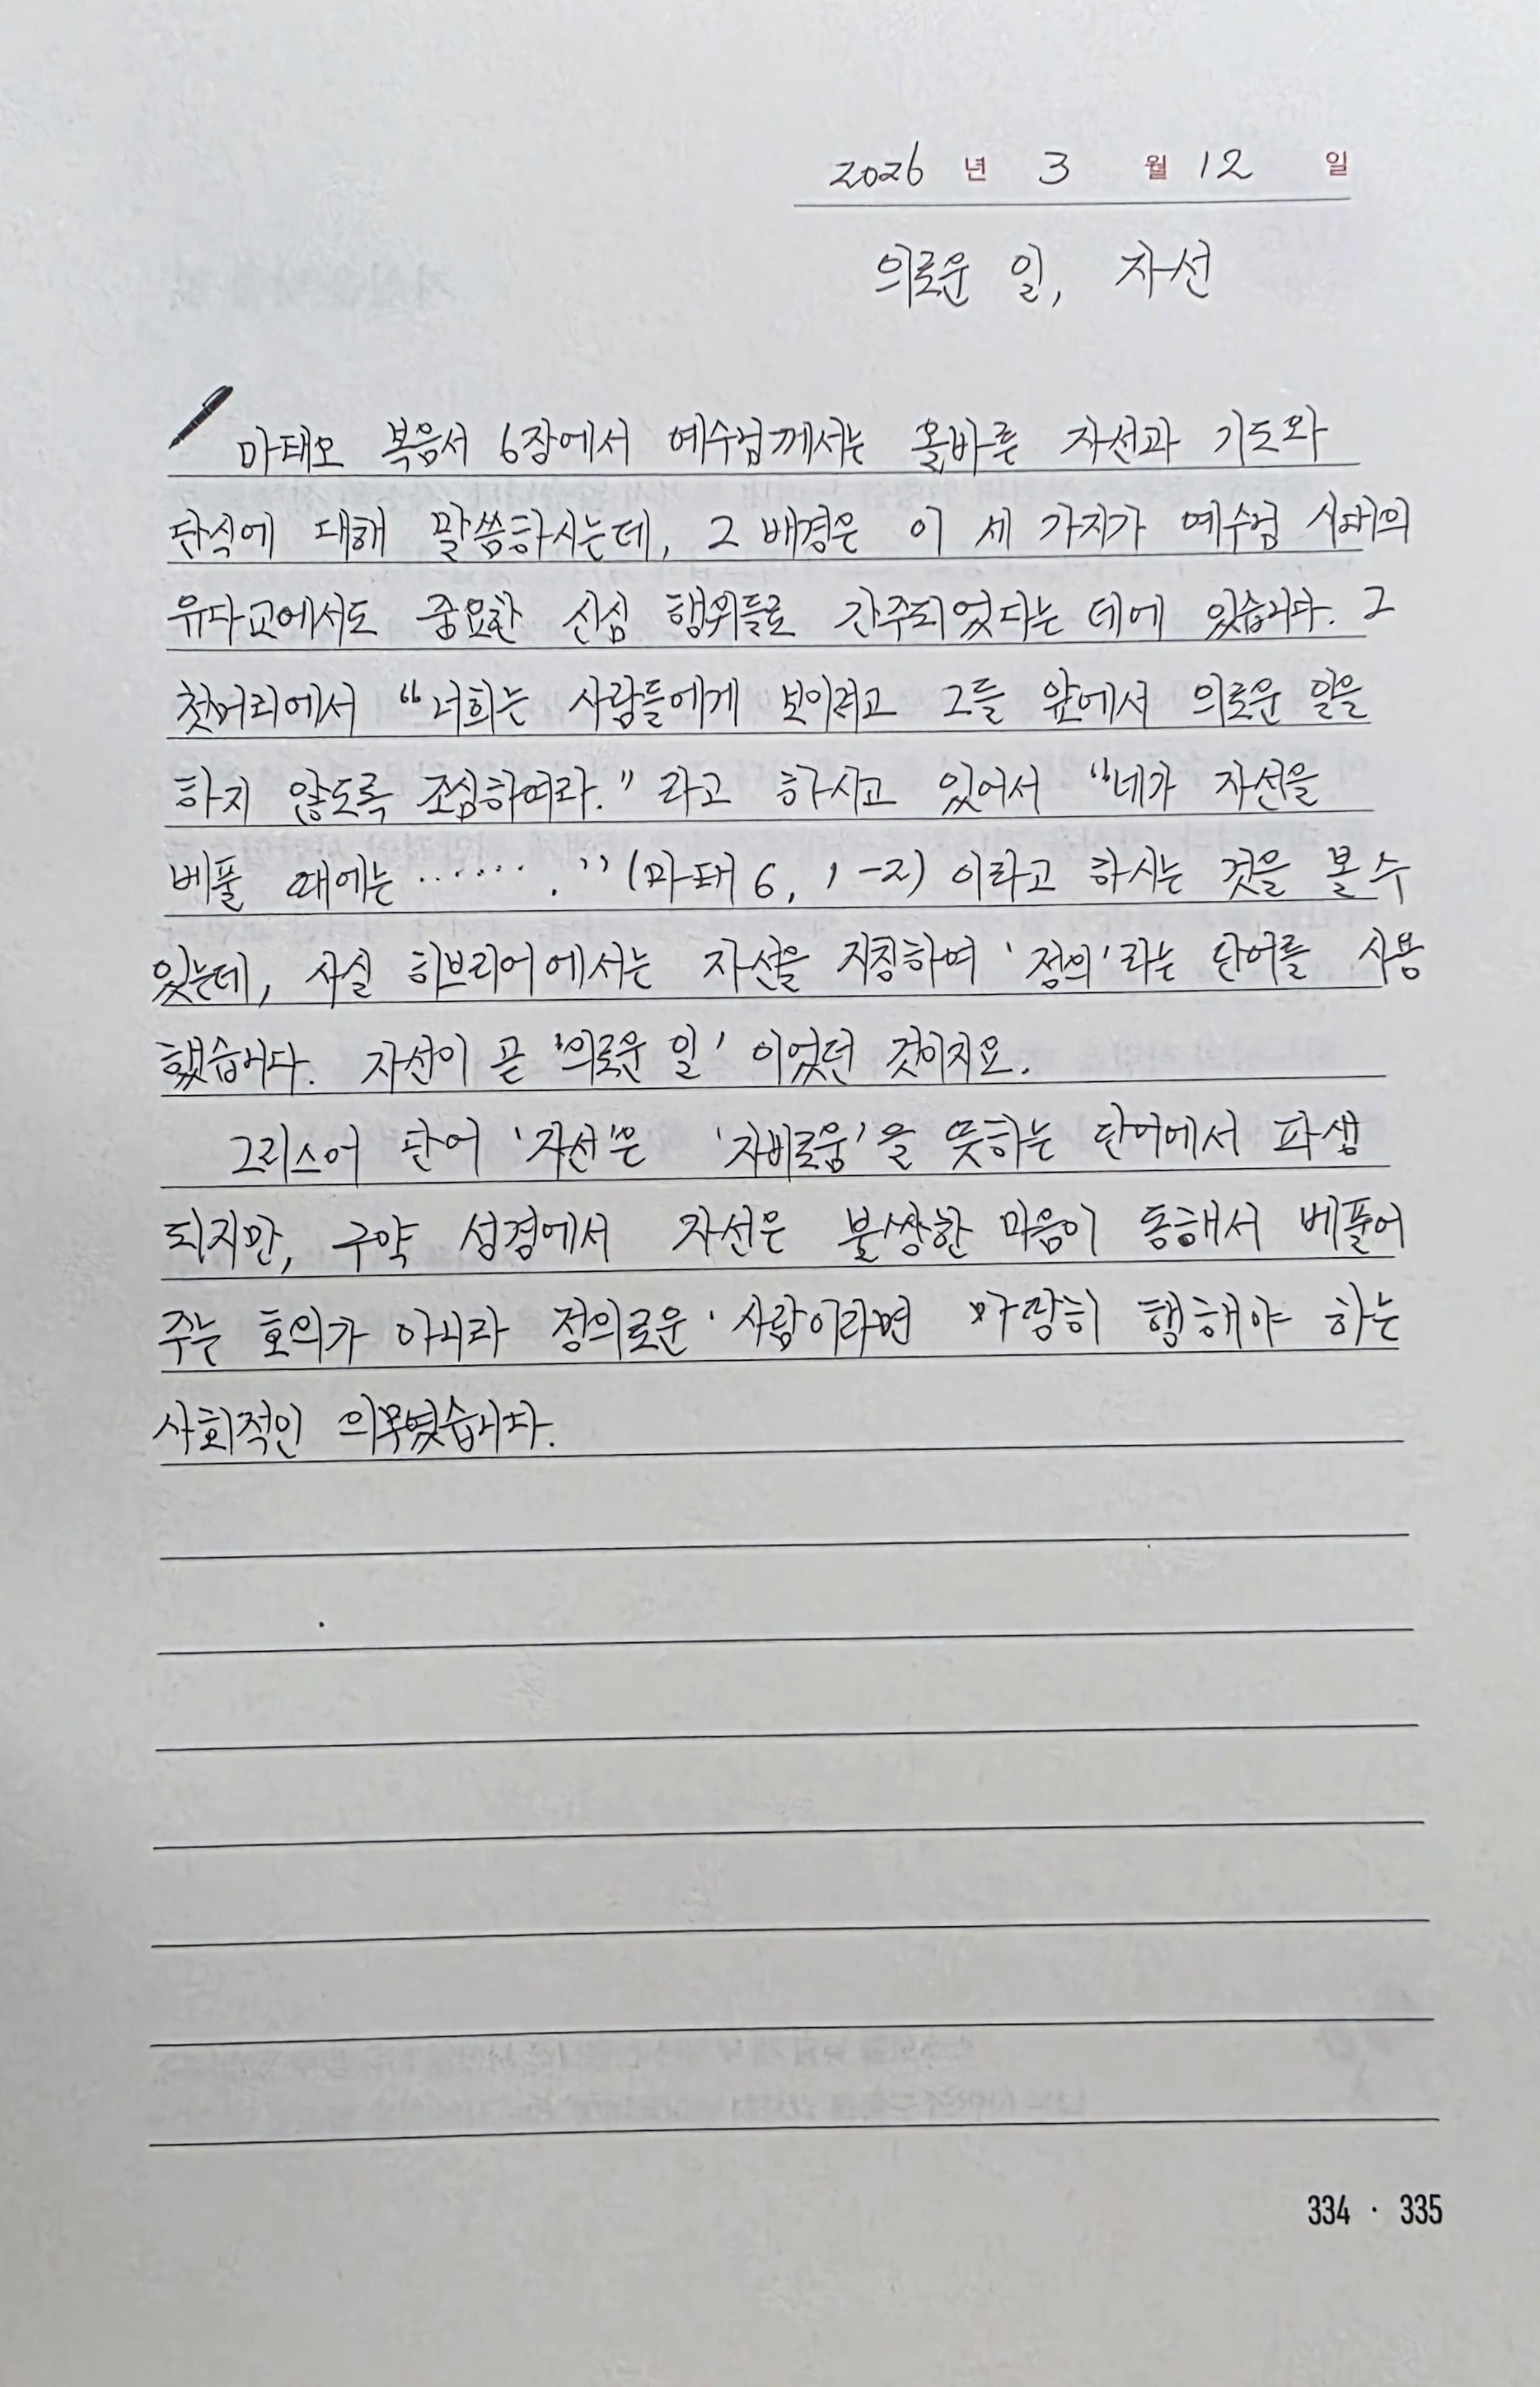 2026 년 3 월 12 일
의로운 일, 자선
마태오 복음서 6장에서 예수님께서는 올바른 자선과 기도와
단식에 대해 말씀하시는데, 그 배경은 이 세 가지가 예수님 시대의
유다교에서도 중요한 신심 행위들로 간주되었다는 데에 있습니다. 그
첫머리에서 “너희는 사람들에게 보이려고 그들 앞에서 의로운 일을
하지 않도록 조심하여라.” 라고 하시고 있어서 “네가 자선을
베풀 때에는 …… .” (마태 6, 1-2) 이라고 하시는 것을 볼 수
있는데, 사실 히브리어에서는 자선을 지칭하여 ‘정의’라는 단어를 사용
했습니다. 자선이 곧 ‘의로운 일’ 이었던 것이지요.
그리스어 단어 ‘자선’은 ‘자비로움’을 뜻하는 단어에서 파생
되지만, 구약 성경에서 자선은 불쌍한 마음이 동해서 베풀어
주는 호의가 아니라 정의로운 사람이라면 마땅히 행해야 하는
사회적인 의무였습니다.
334 · 335